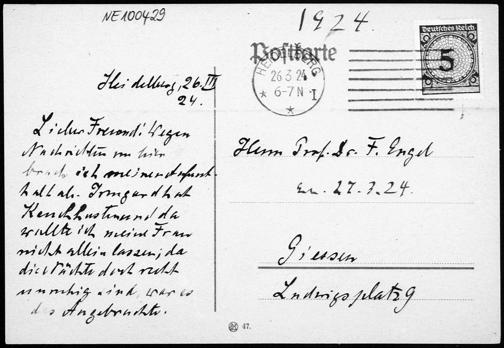 NE100429
1924.
Postkarte
Deutsches Reich
5
HEIDELBERG
26.3.24
6-7 N
* I
*
Heidelberg, 26. III
24.
Lieber Freund! Wegen
Nachrichten von hier
brach ich meinen Aufent-
halt ab. Irmgard hat
Keuchhusten und da
wollte ich meine Frau
nicht allein lassen; da
die Nächte doch recht
unruhig sind, war es
das Angebrachte.
Herrn Prof. Dr. F. Engel
27.3.24.
Giessen
Ludwigsplatz 9
47.